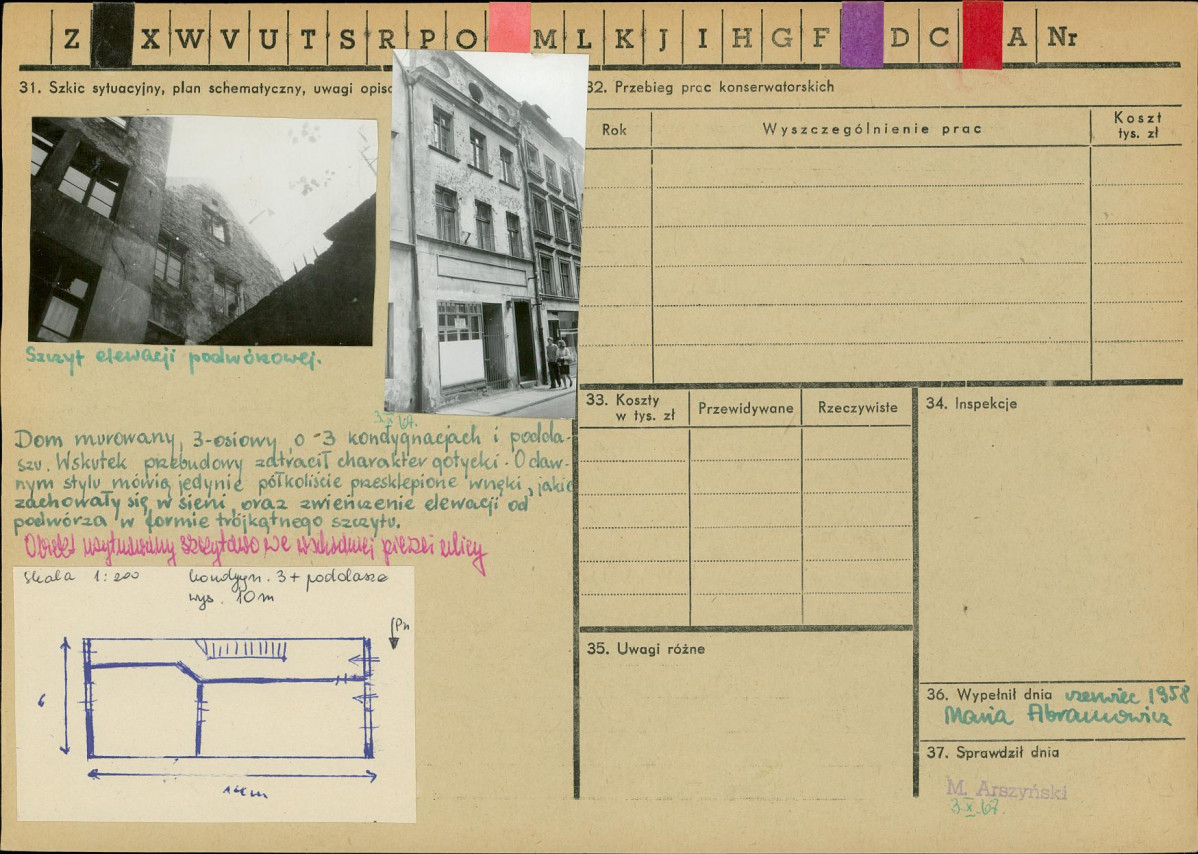 Z X W V U T S R P O M L K J I H G F D C A Nr
31. Szkic sytuacyjny, plan schematyczny, uwagi opiso
Szczyt elewacji podwórzowej.
3.X.67.
Dom murowany, 3-osiowy, o 3 kondygnacjach i podda-
szu. Wskutek przebudowy zatracił charakter gotycki. O daw-
nym stylu mówią jedynie półkoliście przesklepione wnęki, jakie
zachowały się w sieni, oraz zwieńczenie elewacji od
podwórza w formie trójkątnego szczytu.
Obiekt usytuowany szczytowo we wschodniej pierzei ulicy
Skala 1:200 kondygn. 3 + poddasze
wys. 10 m
Pn
6
14m
32. Przebieg prac konserwatorskich
Rok Wyszczególnienie prac Koszt
tys. zł
33. Koszty
w tys. zł Przewidywane Rzeczywiste
34. Inspekcje
35. Uwagi różne
36. Wypełnił dnia czerwiec 1958
Maria Abramowicz
37. Sprawdził dnia
M. Arszyński
3.X.67.